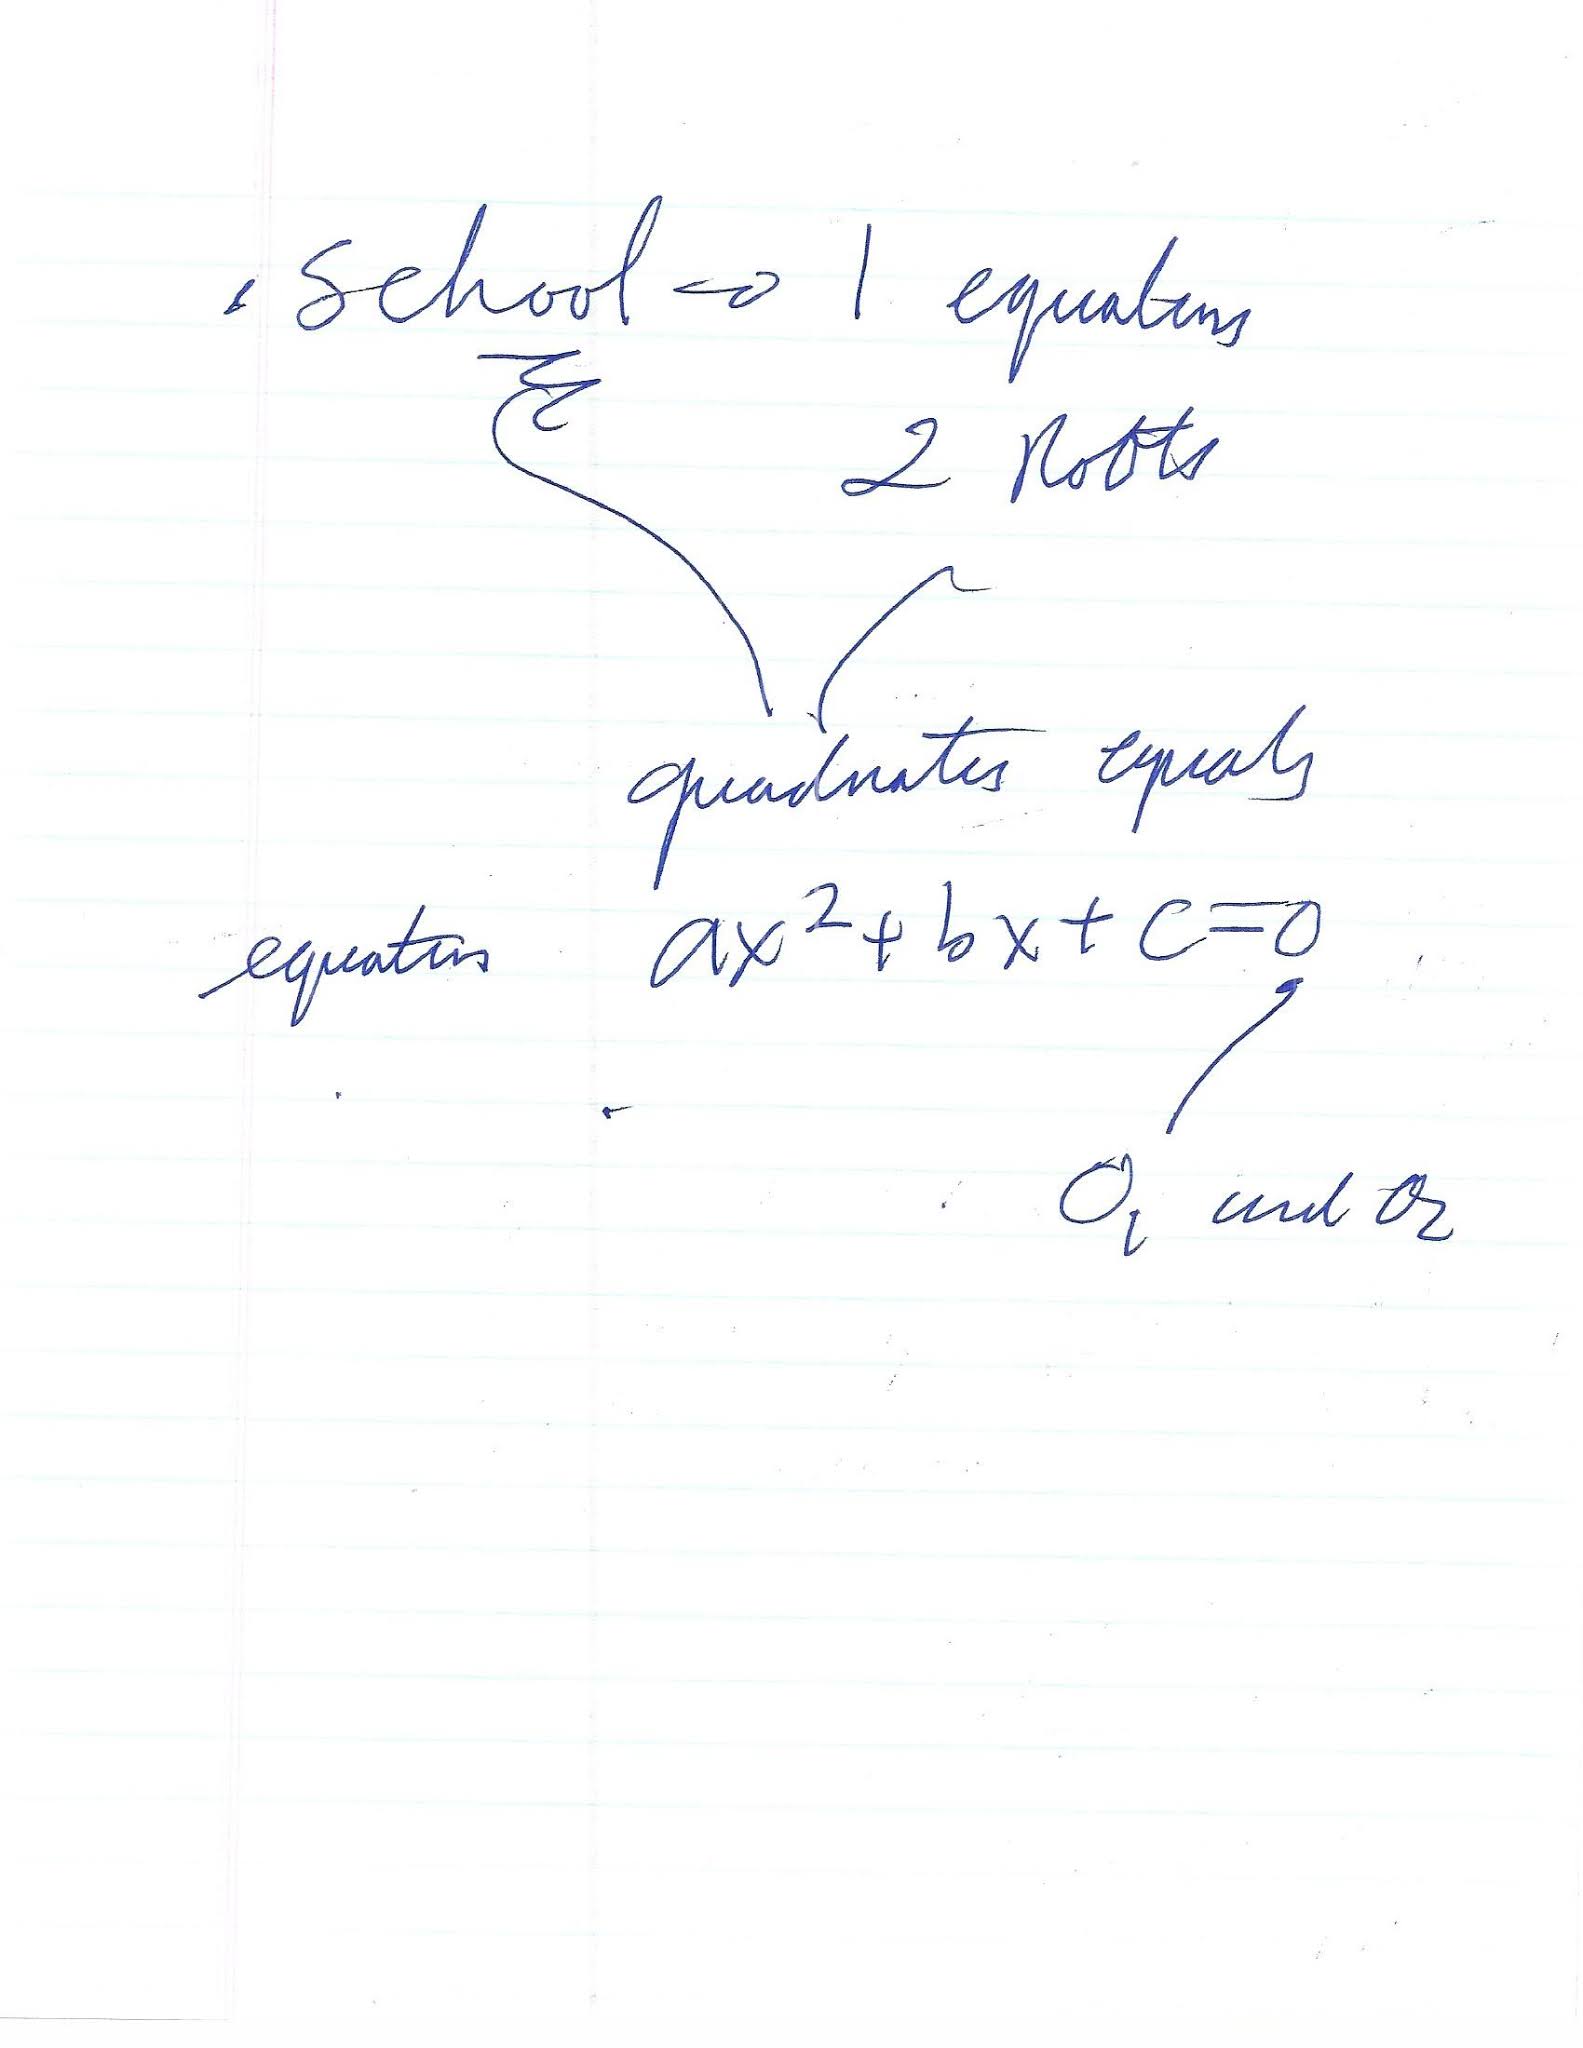 . School → 1 equations
2 Roots
quadratis equals
equations ax²+bx+c=0
O₁ and O₂